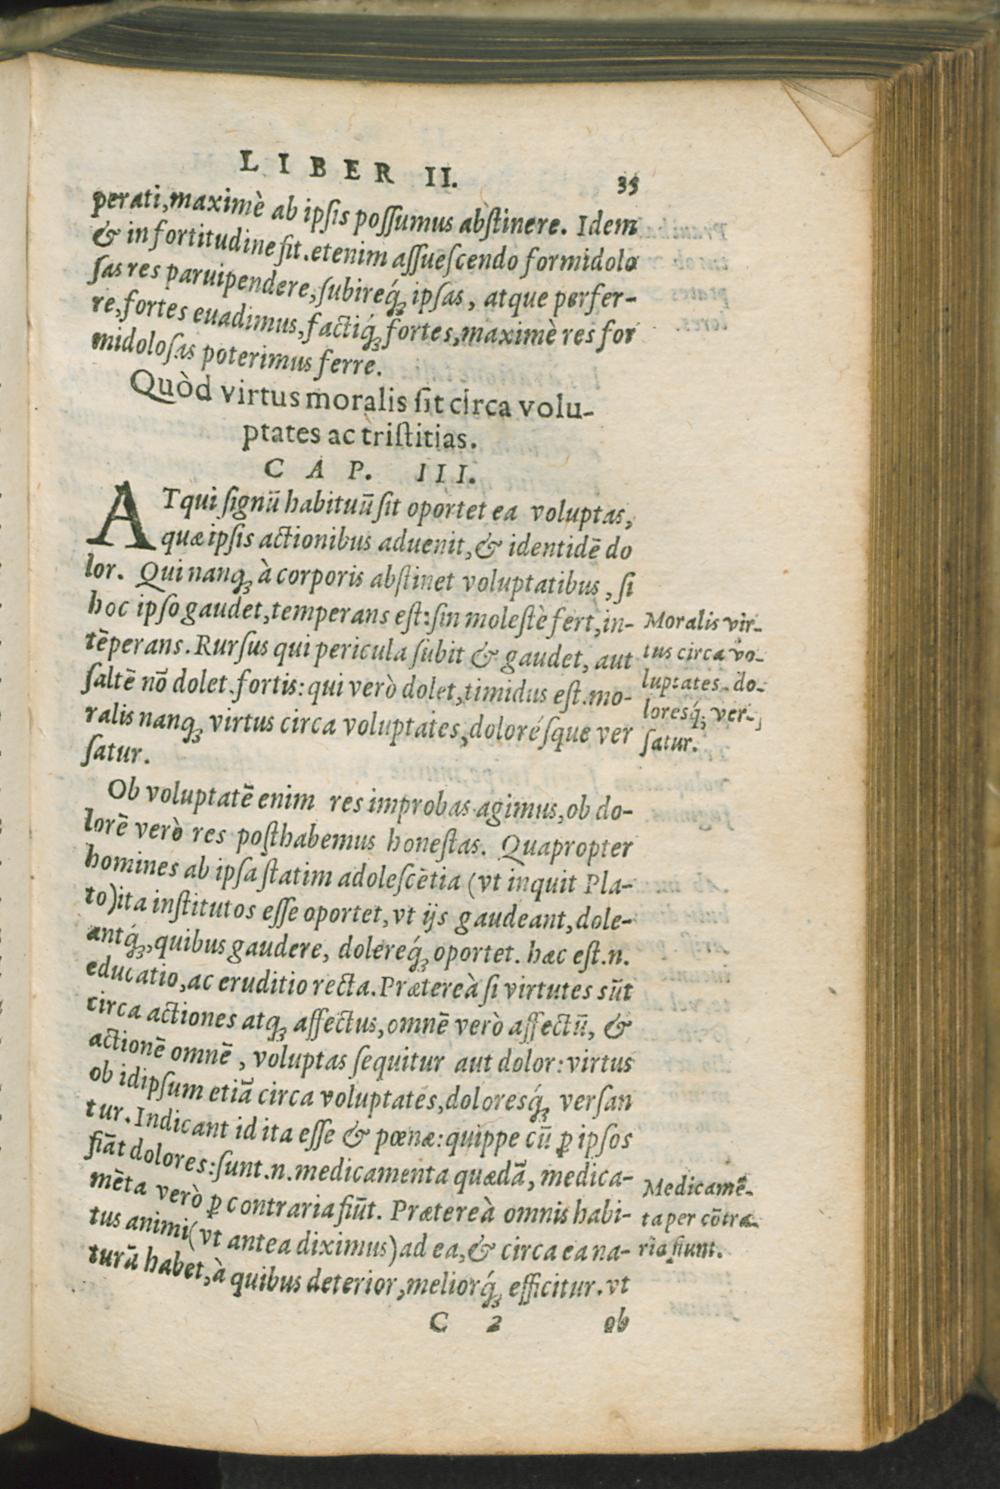 LIBER II. 35
perati, maximè ab ipsis possumus abstinere. Idem
& in fortitudine fit. etenim assuescendo formidolo
sas res paruipendere, subireq́ꝫ ipsas, atque perfer-
re, fortes euadimus, factiq́ꝫ fortes, maximè res for
midolosas poterimus ferre.
Quòd virtus moralis sit circa volu-
ptates ac tristitias.
CAP. III.
ATqui signū habituū sit oportet ea voluptas,
quæ ipsis actionibus aduenit, & identidē do
lor. Qui nanqꝫ à corporis abstinet voluptatibus, si
hoc ipso gaudet, temperans est: sin molestè fert, in-
tēperans. Rursus qui pericula subit & gaudet, aut
saltē nō dolet. fortis: qui verò dolet, timidus est. mo-
ralis nanqꝫ virtus circa voluptates, dolorésque ver
satur.
Moralis vir-
tus circa vo-
luptates. do-
loresq́ꝫ ver-
satur.
Ob voluptatē enim res improbas agimus, ob do-
lorē verò res posthabemus honestas. Quapropter
homines ab ipsa statim adolescētia (vt inquit Pla-
to) ita institutos esse oportet, vt ijs gaudeant, dole-
antq́ꝫ, quibus gaudere, dolereq́ꝫ oportet. hæc est.n.
educatio, ac eruditio recta. Prætereà si virtutes sūt
circa actiones atqꝫ affectus, omnē verò affectū, &
actionē omnē, voluptas sequitur aut dolor: virtus
ob idipsum etiā circa voluptates, doloresq́ꝫ versan
tur. Indicant id ita esse & pœnæ: quippe cū ꝑ ipsos
fiāt dolores: sunt.n. medicamenta quædā, medica-
mēta verò ꝑ contraria fiūt. Prætereà omnis habi-
tus animi (vt antea diximus) ad ea, & circa ea na-
turā habet, à quibus deterior, meliorq́ꝫ efficitur. vt
Medicamē-
ta per cōtra-
ria fiunt.
C 2 ob